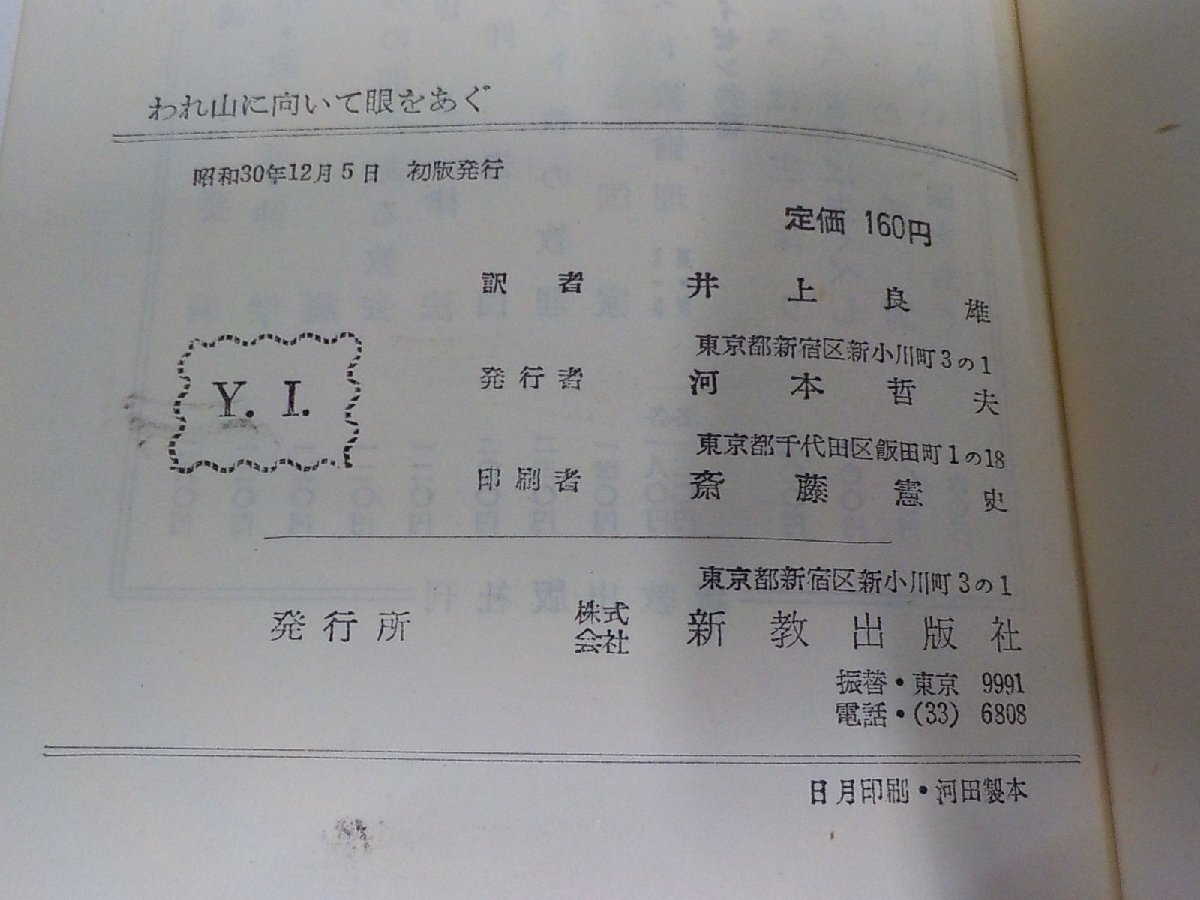 われ山に向いて眼をあぐ
昭和30年12月5日 初版発行
定価 160円
訳者 井上良雄
東京都新宿区新小川町3の1
発行者 河本哲夫
Y. I.
東京都千代田区飯田町1の18
印刷者 斎藤憲史
東京都新宿区新小川町3の1
発行所 株式会社 新教出版社
振替・東京 9991
電話・(33) 6808
日月印刷・河田製本